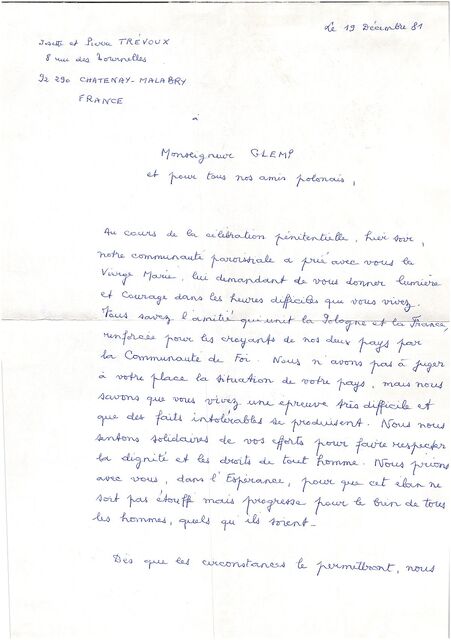 Le 19 Décembre 81
Josette et Pierre TRÉVOUX
8 rue des Tournelles
92 290 CHATENAY-MALABRY
FRANCE
à
Monseigneur GLEMP
et pour tous nos amis polonais,
Au cours de la célébration pénitentielle, hier soir,
notre communauté paroissiale a prié avec vous la
Vierge Marie, lui demandant de vous donner lumière
et Courage dans les heures difficiles que vous vivez.
Vous savez l'amitié qui unit la Pologne et la France,
renforcée pour les croyants de nos deux pays par
la Communauté de Foi. Nous n'avons pas à juger
à votre place la situation de votre pays, mais nous
savons que vous vivez une épreuve très difficile et
que des faits intolérables se produisent. Nous nous
sentons solidaires de vos efforts pour faire respecter
la dignité et les droits de tout homme. Nous prions
avec vous, dans l'Espérance, pour que cet élan ne
soit pas étouffé mais progresse pour le bien de tous
les hommes, quels qu'ils soient_
Dès que les circonstances le permettront, nous